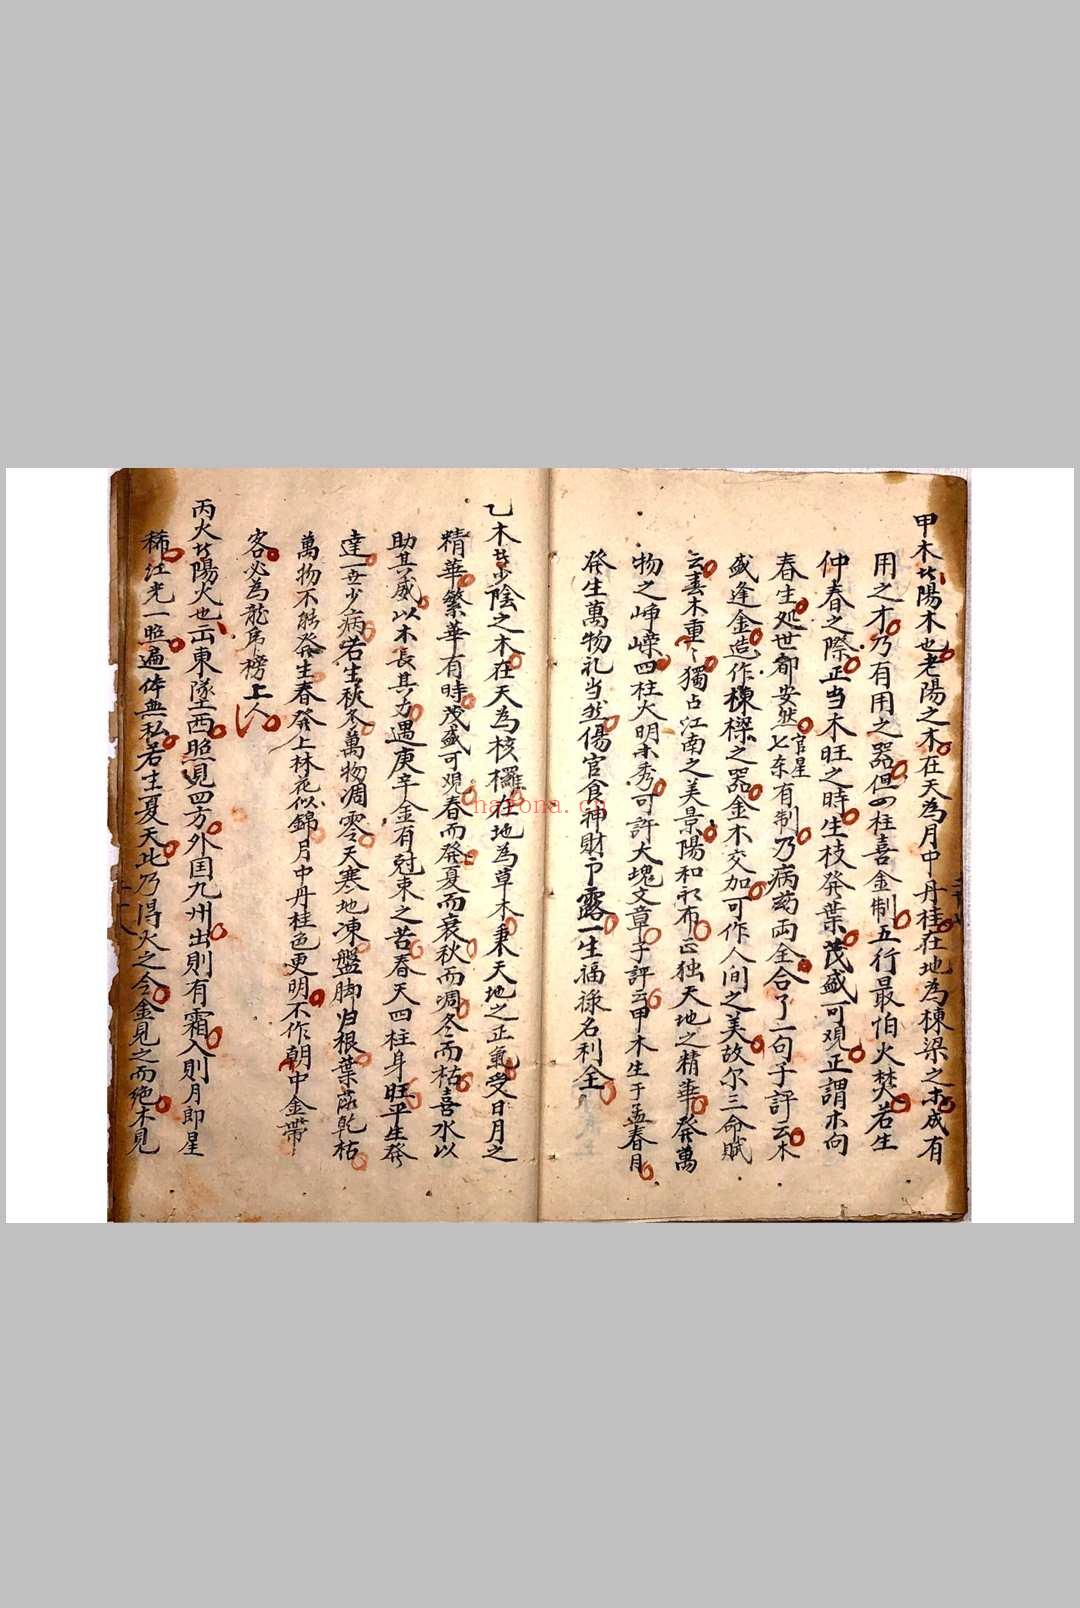 甲木廿陽木也老陽之木在天為月中丹桂在地為棟梁之木成有
用之才乃有用之器但四柱喜金制五行最怕火焚若生
仲春之際正当木旺之時生枝発葉茂盛可观正謂木向
春生处世卻安然官星七条有制乃病药両全合了一句子評云木
盛逢金造作棟樑之器金木交加可作人间之美故尔三命賦
云春木重々獨占江南之美景陽和 布正独天地之精華発萬
物之峥嶸四柱火明木秀可許大塊文章子評云甲木生于孟春月
発生萬物礼当然傷官食神財卩露一生福禄名利全
乙木廿少陰之木在天為桫欏在地為草木秉天地之正氣受日月之
精華繁華有時茂盛可观春而發夏而衰秋而凋冬而枯喜水以
助其威以木長其 遇庚辛金有尅束之苦春天四柱身旺平生發
達一世少病若生秋冬萬物凋零天寒地凍盤脚归根葉落乾枯
萬物不能發生春發上林花似錦月中丹桂色更明不作朝中金帶
客必為龍虎榜上人
丙火廿陽火也出東墜西照見四方外囯九州出則有霜入則月即星
稀江光一照遍体無私若生夏天此乃得火之令金見之而绝木見
hafona.cn